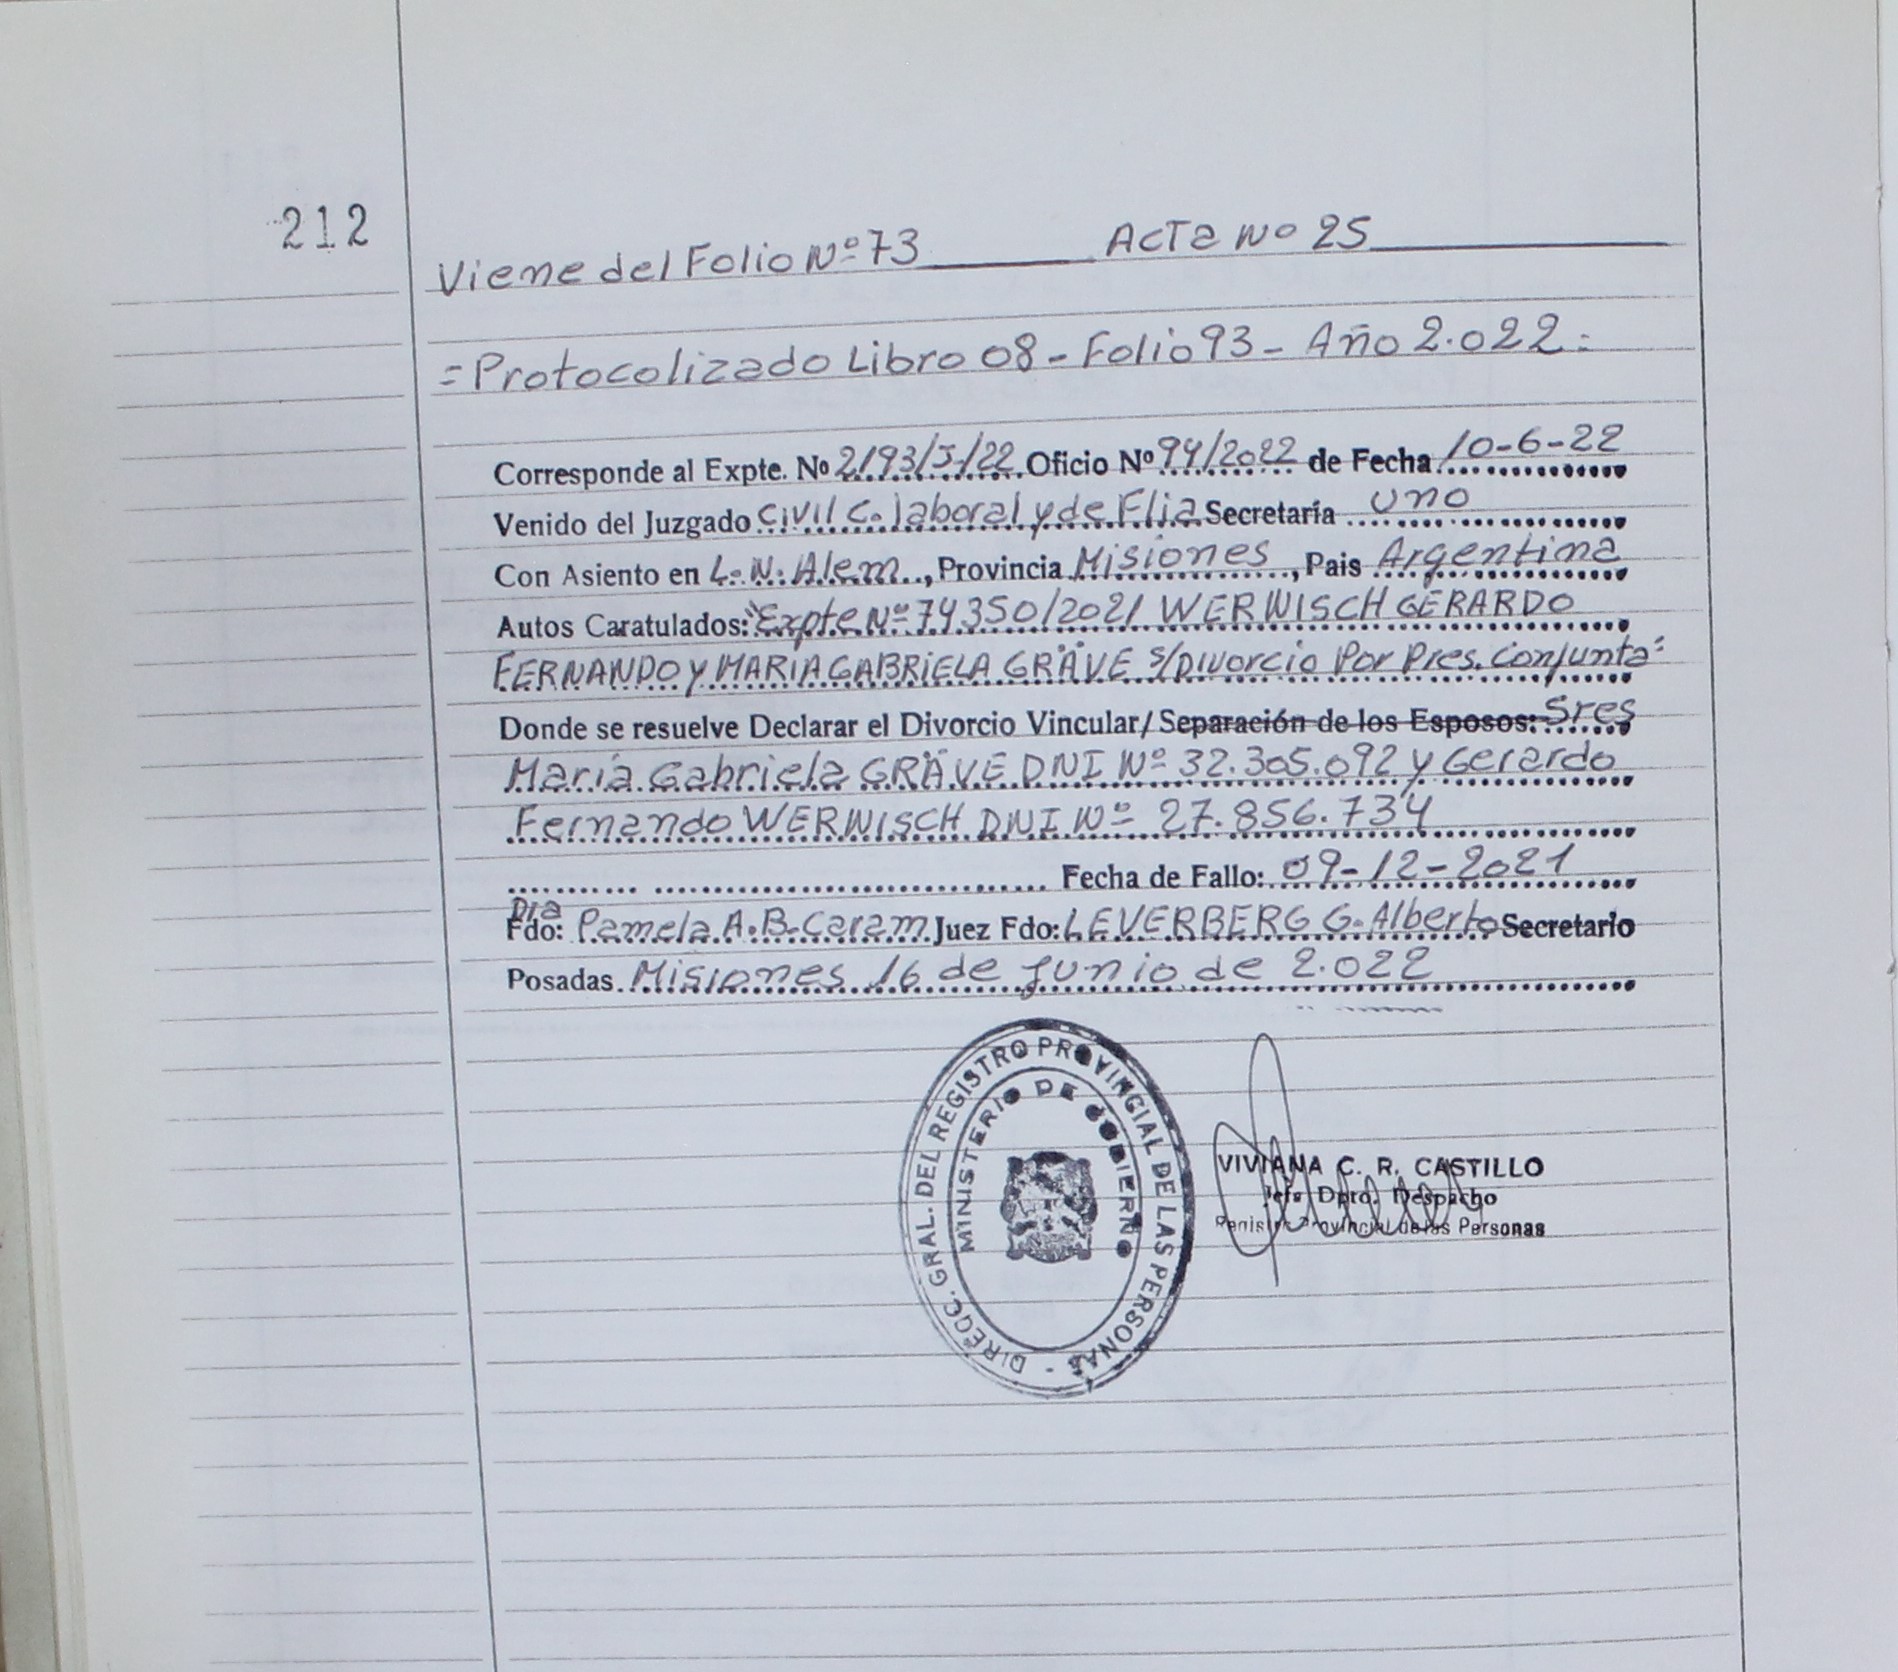 212
Viene del Folio Nº 73 ACTA Nº 25
= Protocolizado Libro 08 - Folio 93 - Año 2.022 =
Corresponde al Expte. Nº 2193/J/22 Oficio Nº 94/2022 de Fecha 10-6-22
Venido del Juzgado Civil C. laboral y de Flia Secretaría uno
Con Asiento en L. N. Alem, Provincia Misiones, Pais Argentina
Autos Caratulados: "Expte Nº 74350/2021 WERNISCH GERARDO
FERNANDO Y MARIA GABRIELA GRÄVE s/Divorcio Por Pres. Conjunta"
Donde se resuelve Declarar el Divorcio Vincular/Separación de los Esposos: Sres
María Gabriela GRÄVE DNI Nº 32.305.092 y Gerardo
Fernando WERNISCH DNI Nº 27.856.734
Fecha de Fallo: 09-12-2021
Dra
Fdo: Pamela A. B. Caram Juez Fdo: LEVERBERG G. Alberto Secretario
Posadas Misiones 16 de Junio de 2.022
DIRECC. GRAL. DEL REGISTRO PROVINCIAL DE LAS PERSONAS -
MINISTERIO DE GOBIERNO
VIVIANA C. R. CASTILLO
Jefa Dpto. Despacho
Registro Provincial de las Personas